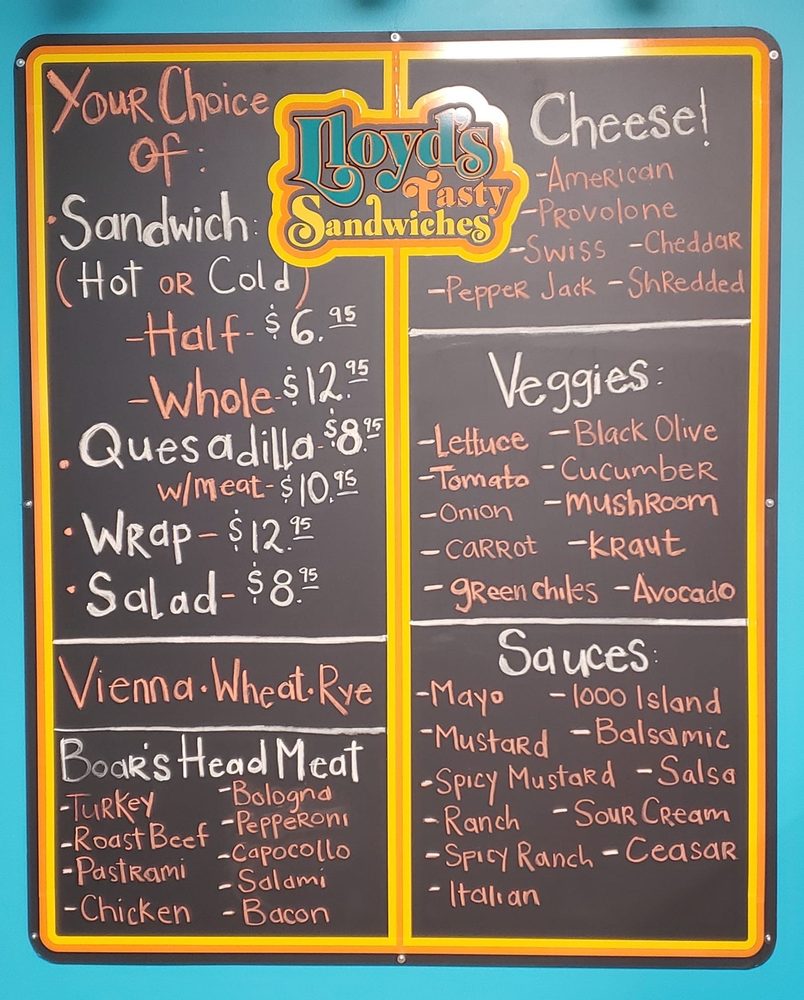 Your Choice
Of:
• Sandwich:
(Hot or Cold)
- Half - $6.95
- Whole - $12.95
• Quesadilla - $8.95
w/meat - $10.95
• Wrap - $12.95
• Salad - $8.95
Vienna • Wheat • Rye
Boar's Head Meat
- Turkey
- Roast Beef
- Pastrami
- Chicken
- Bologna
- Pepperoni
- Capocollo
- Salami
- Bacon
Lloyd's
Tasty
Sandwiches
Cheese!
- American
- Provolone
- Swiss - Cheddar
- Pepper Jack - Shredded
Veggies:
- Lettuce
- Tomato
- Onion
- Carrot
- Green chiles
- Black Olive
- Cucumber
- Mushroom
- Kraut
- Avocado
Sauces:
- Mayo
- Mustard
- Spicy Mustard
- Ranch
- Spicy Ranch
- Italian
- 1000 Island
- Balsamic
- Salsa
- Sour Cream
- Ceasar